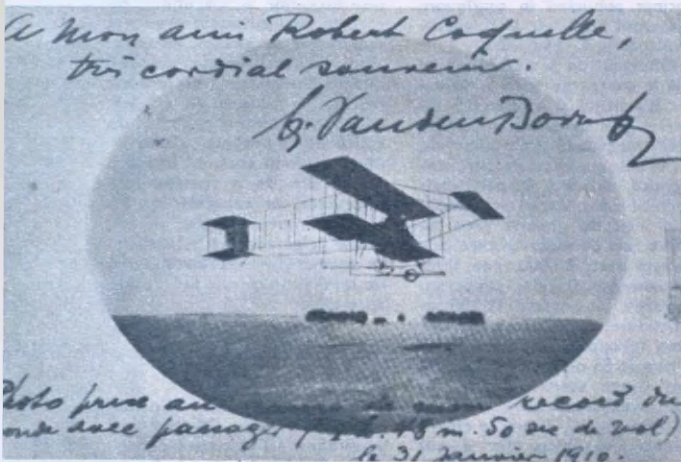 A mon ami Robert Coquelle,
très cordial souvenir.
Ch. Van den Born
Photo prise au de mon record du
monde avec passager ( 48 m. 50 sec de vol)
le 31 Janvier 1910.